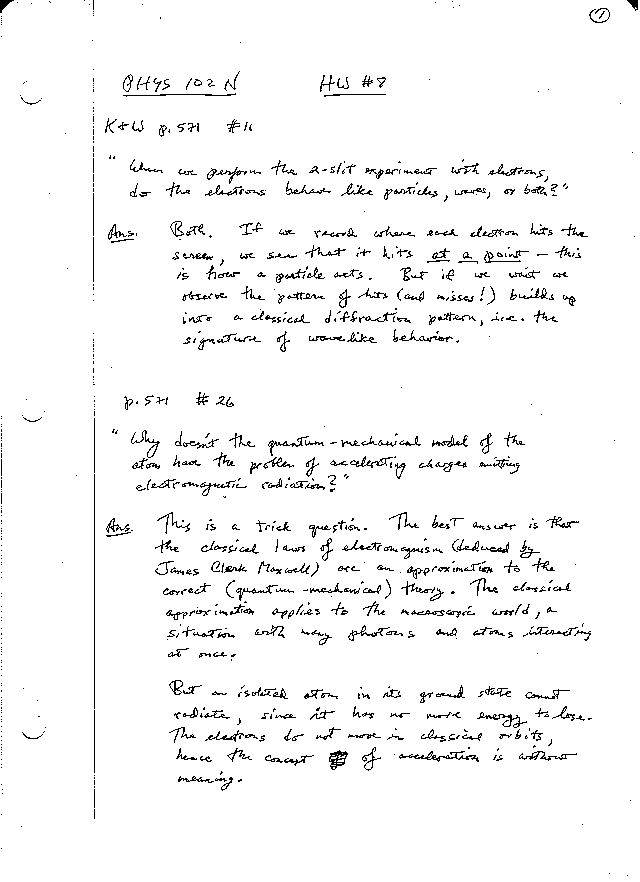 1
PHYS 102 N HW #8
K+W p. 571 #16
"When we perform the 2-slit experiment with electrons,
do the electrons behave like particles, waves, or both?"
Ans. Both. If we record where each electron hits the
screen, we see that it hits at a point – this
is how a particle acts. But if we wait we
observe the pattern of hits (and misses!) builds up
into a classical diffraction pattern, i.e. the
signature of wavelike behavior.
p. 571 # 26
"Why doesn't the quantum-mechanical model of the
atom have the problem of accelerating charges emitting
electromagnetic radiation?"
Ans. This is a trick question. The best answer is that
the classical laws of electromagnism (deduced by
James Clerk Maxwell) are an approximation to the
correct (quantum-mechanical) theory. The classical
approximation applies to the macroscopic world, a
situation with many photons and atoms interacting
at once.
But an isolated atom in its ground state cannot
radiate, since it has no more energy to lose.
The electrons do not move in classical orbits,
hence the concept of acceleration is without
meaning.